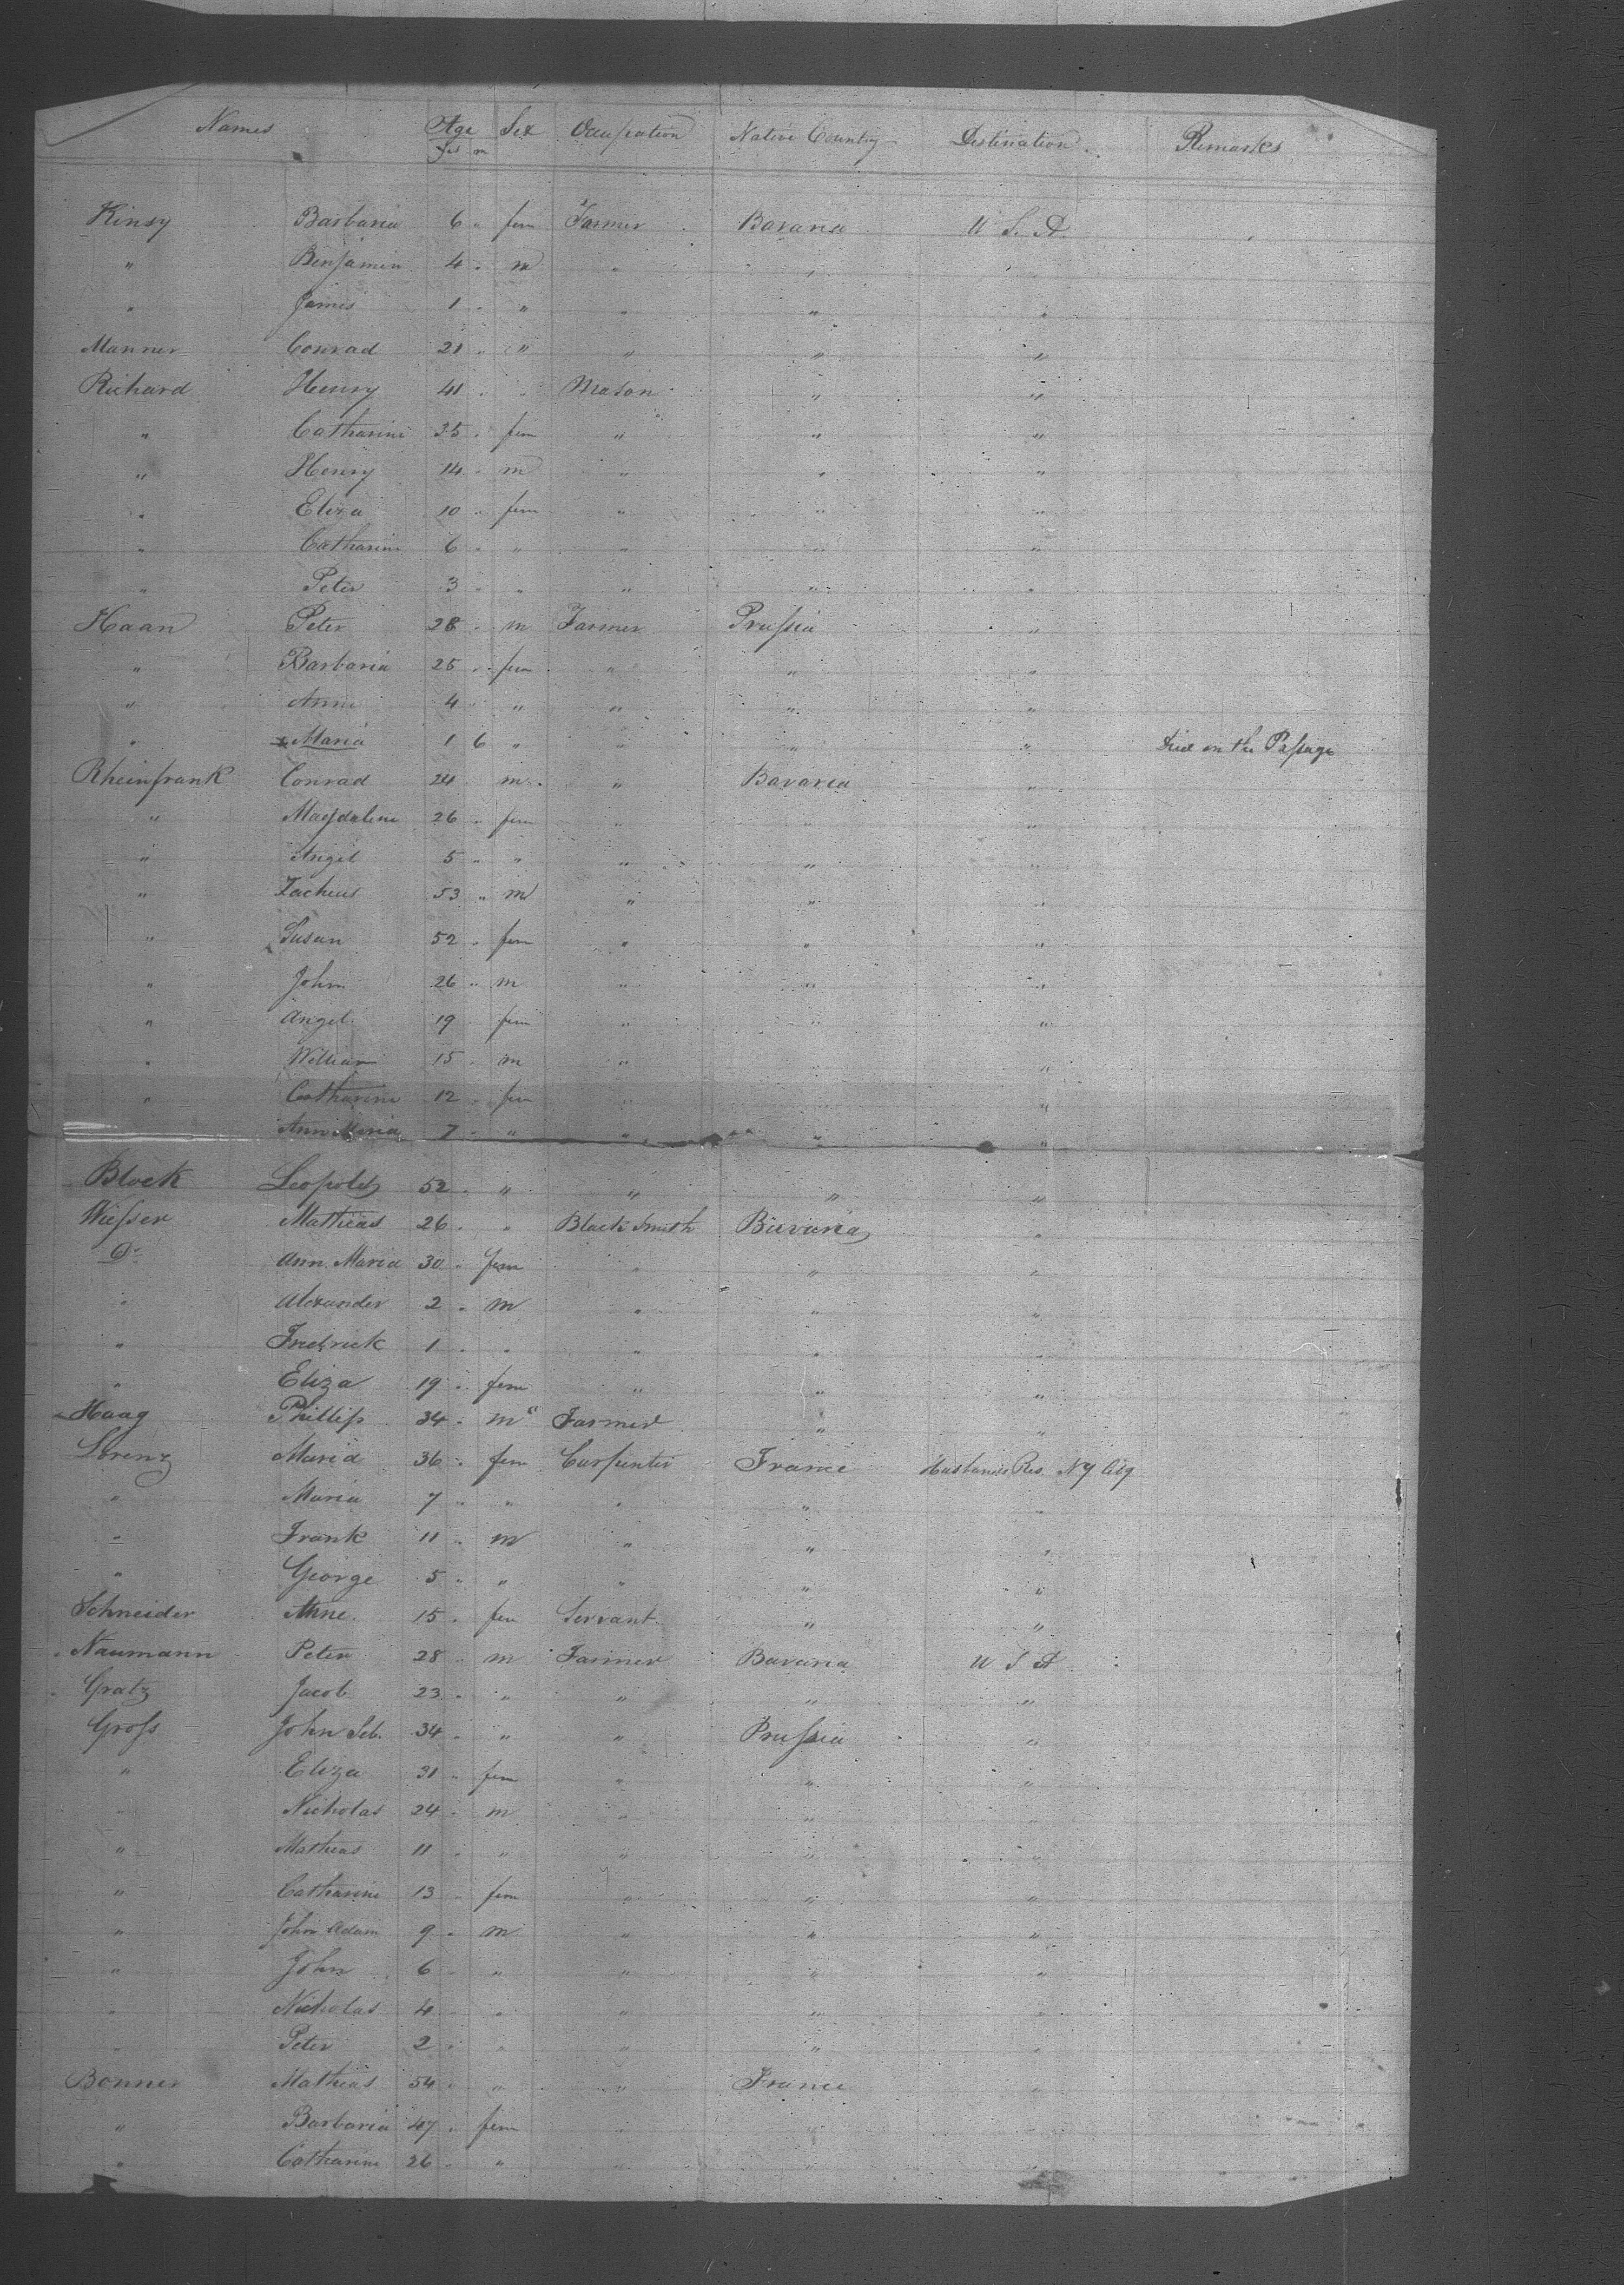 Names Age Sex Occupation Native Country Destination Remarks
Yrs m
Kinsy Barbaria 6 " fem Farmer Bavaria U S. A.
" Benjamin 4 " m " " "
" James 1 " " " " "
Manner Conrad 21 " " " " "
Richard Henry 41 " " Mason " "
" Catharine 35 " fem " " "
" Henry 14 " m " " "
" Eliza 10 " fem " " "
" Catharine 6 " " " " "
" Peter 3 " " " " "
Haan Peter 28 " m Farmer Prussia "
" Barbaria 25 " fem " " "
" Anna 4 " " " " "
" x Maria 1 6 " " " " Died on the Passage
Rheinfrank Conrad 24 m " Bavaria "
" Magdalena 26 " fem " " "
" Angel 5 " " " " "
" Zacheus 53 " m " " "
" Susan 52 " fem " " "
" John 26 " m " " "
" Angel 19 " fem " " "
" William 15 " m " "
" Catharine 12 " fem " " "
Ann Maria 7 " " " " "
Block Leopold 52 " " " " "
Wiesser Mathias 26 " " Black Smith Bavaria "
Do Ann Maria 30 " fem " " "
" Alexander 2 " m " " "
" Fredrick 1 " " " " "
" Eliza 19 " fem " " "
Haag Phillip 34 " m " Farmer " "
Lorenz Maria 36 " fem Carpenter France Husbands Res. N Y City
" Maria 7 " " " " "
" Frank 11 " m " " "
" George 5 " " " " "
Schneider Anne 15 " fem Servant " "
Naumann Peter 28 " m Farmer Bavaria U S A
Gratz Jacob 23 " " " " "
Gross John Seb. 34 " " " Prussia "
" Eliza 31 " fem " " "
" Nicholas 24 " m " " "
" Mathias 11 " " " " "
" Catharine 13 " fem " " "
" John Adam 9 " m " " "
" John 6 " " " " "
" Nicholas 4 " " " " "
" Peter 2 " " " " "
Bonner Mathias 54 " " " France "
" Barbaria 47 " fem " " "
" Catharine 26 " " " " "